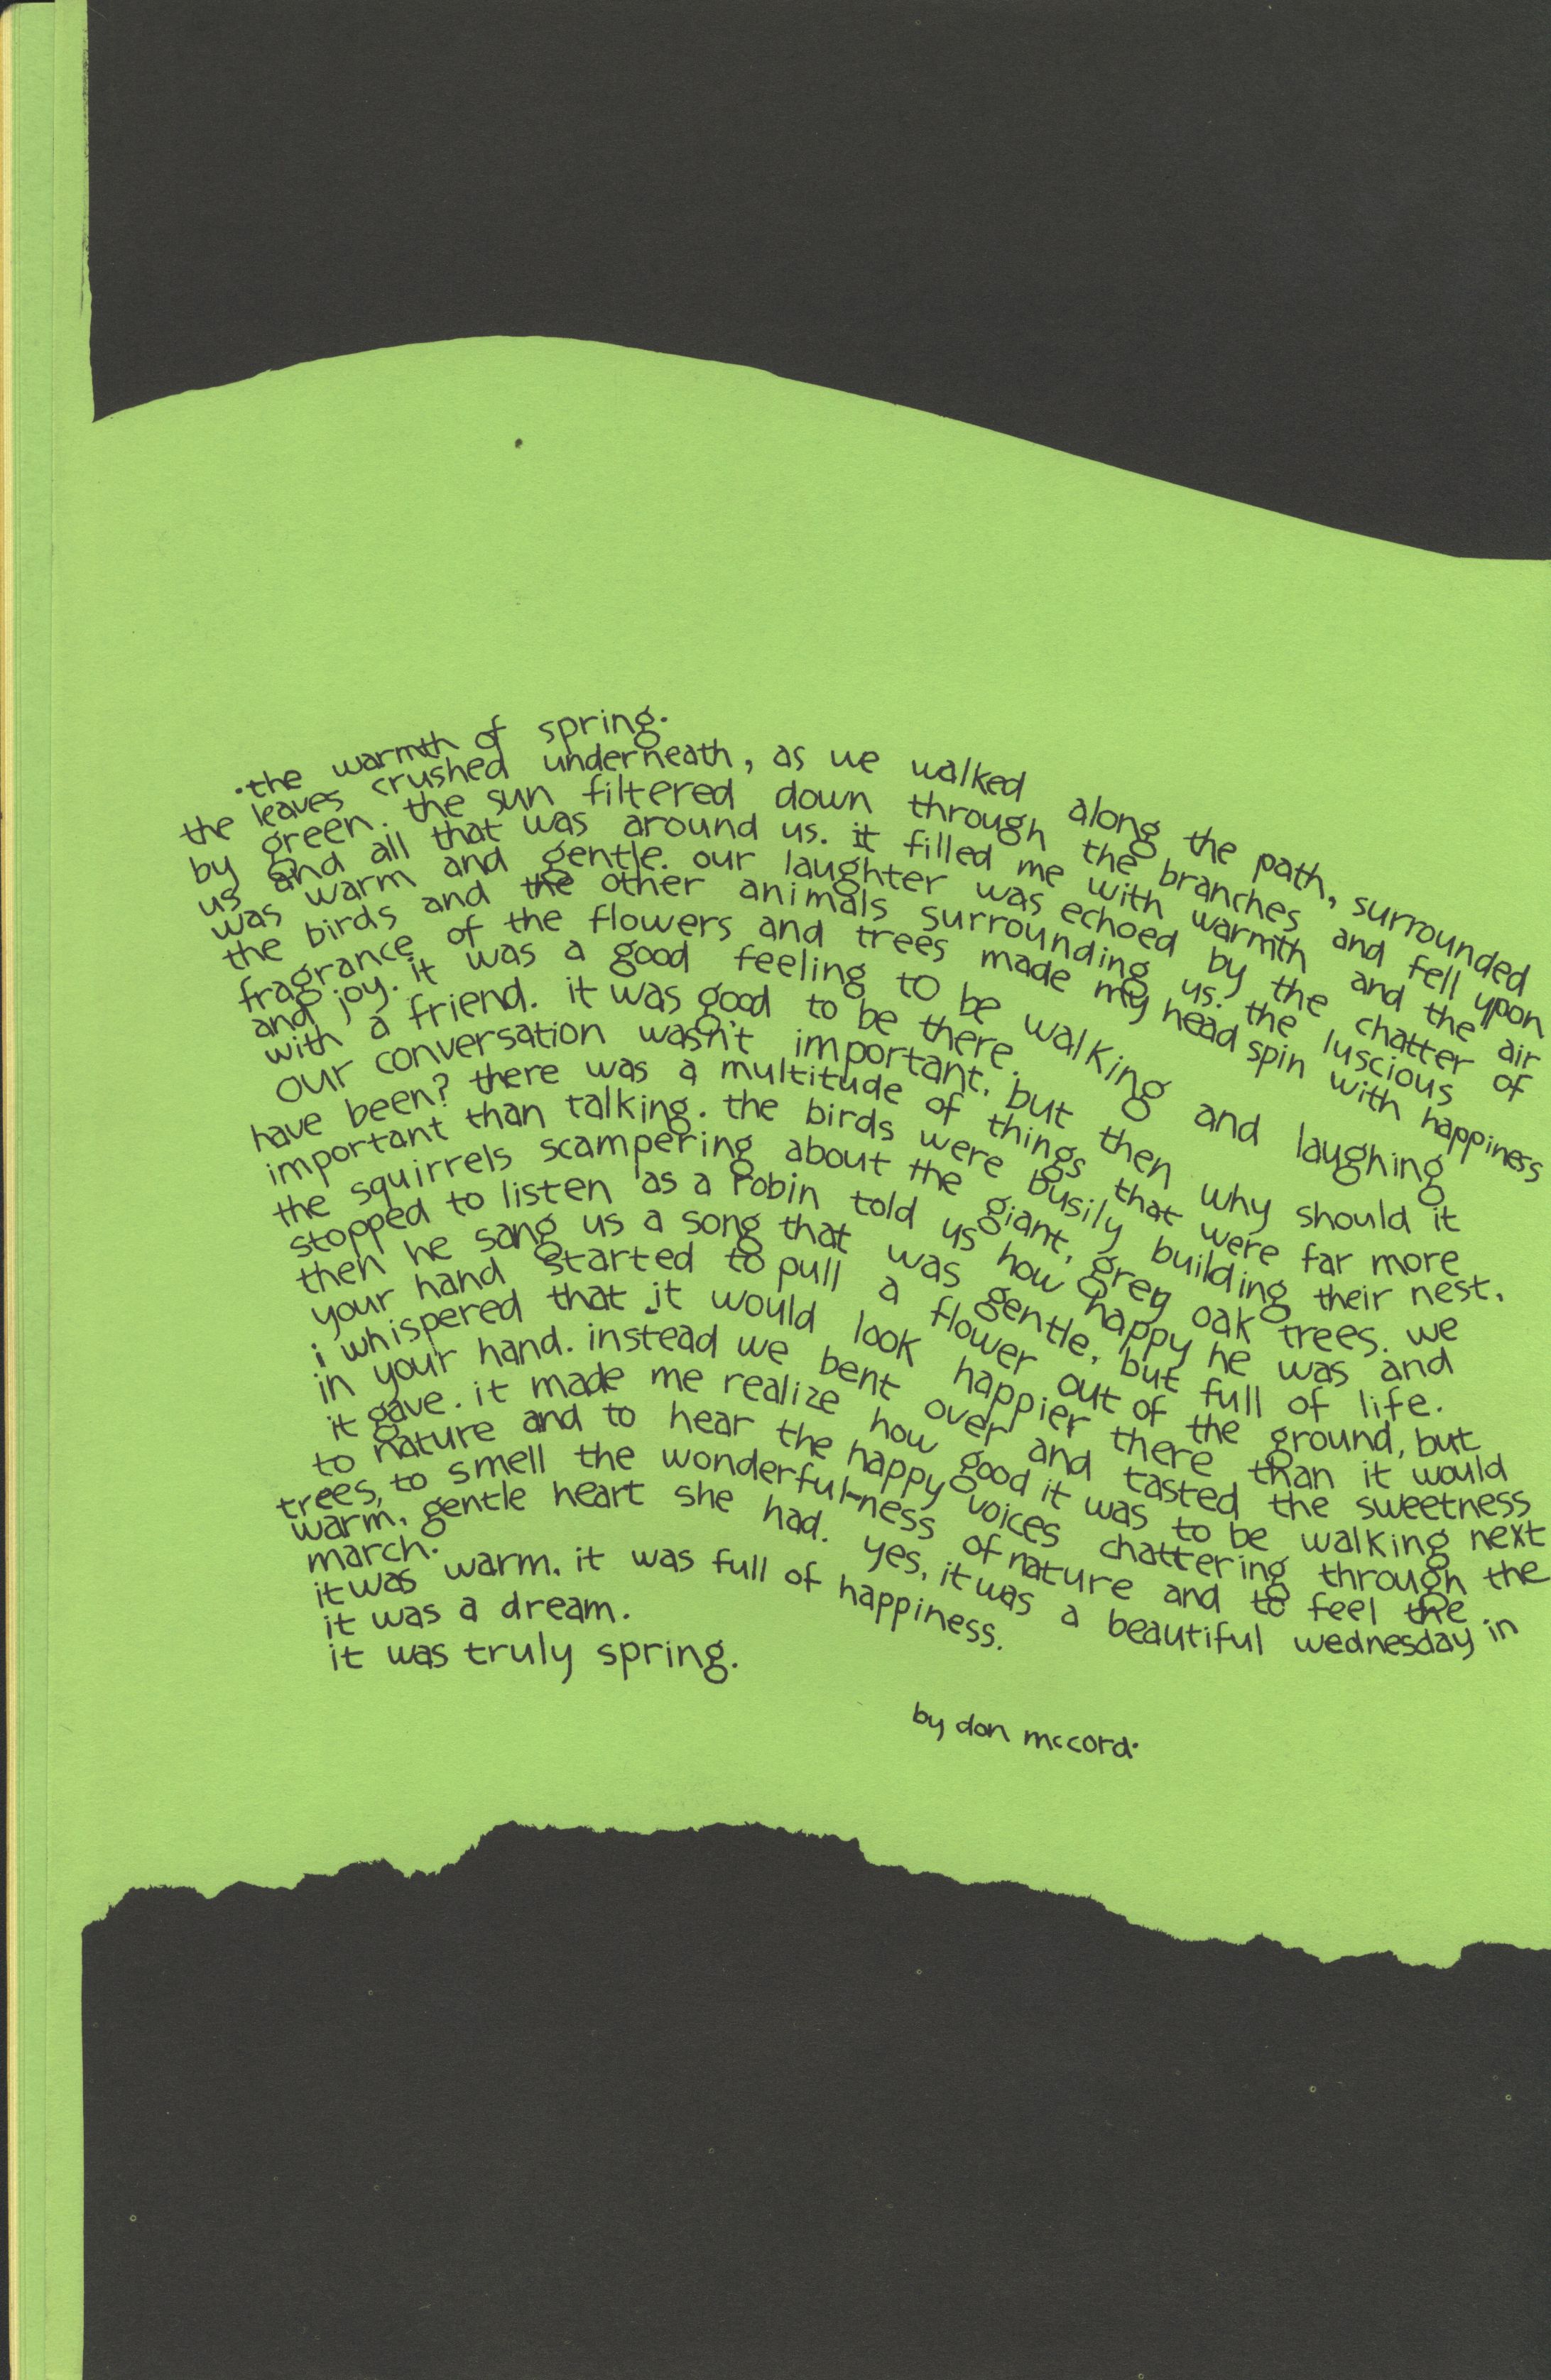 ·the warmth of spring.
the leaves crushed underneath, as we walked along the path, surrounded
by green. the sun filtered down through the branches and fell upon
us and all that was around us. it filled me with warmth and the air
was warm and gentle. our laughter was echoed by the chatter of
the birds and the other animals surrounding us. the luscious
fragrance of the flowers and trees made my head spin with happiness
and joy. it was a good feeling to be walking and laughing
with a friend. it was good to be there.
our conversation wasn't important, but then why should it
have been? there was a multitude of things that were far more
important than talking. the birds were busily building their nest,
the squirrels scampering about the giant, grey oak trees. we
stopped to listen as a robin told us how happy he was and
then he sang us a song that was gentle, but full of life.
your hand started to pull a flower out of the ground, but
i whispered that it would look happier there than it would
in your hand. instead we bent over and tasted the sweetness
it gave. it made me realize how good it was to be walking next
to nature and to hear the happy voices chattering through the
trees, to smell the wonderful-ness of nature and to feel the
warm, gentle heart she had. yes, it was a beautiful wednesday in
march.
it was warm. it was full of happiness.
it was a dream.
it was truly spring.
by don mccord·